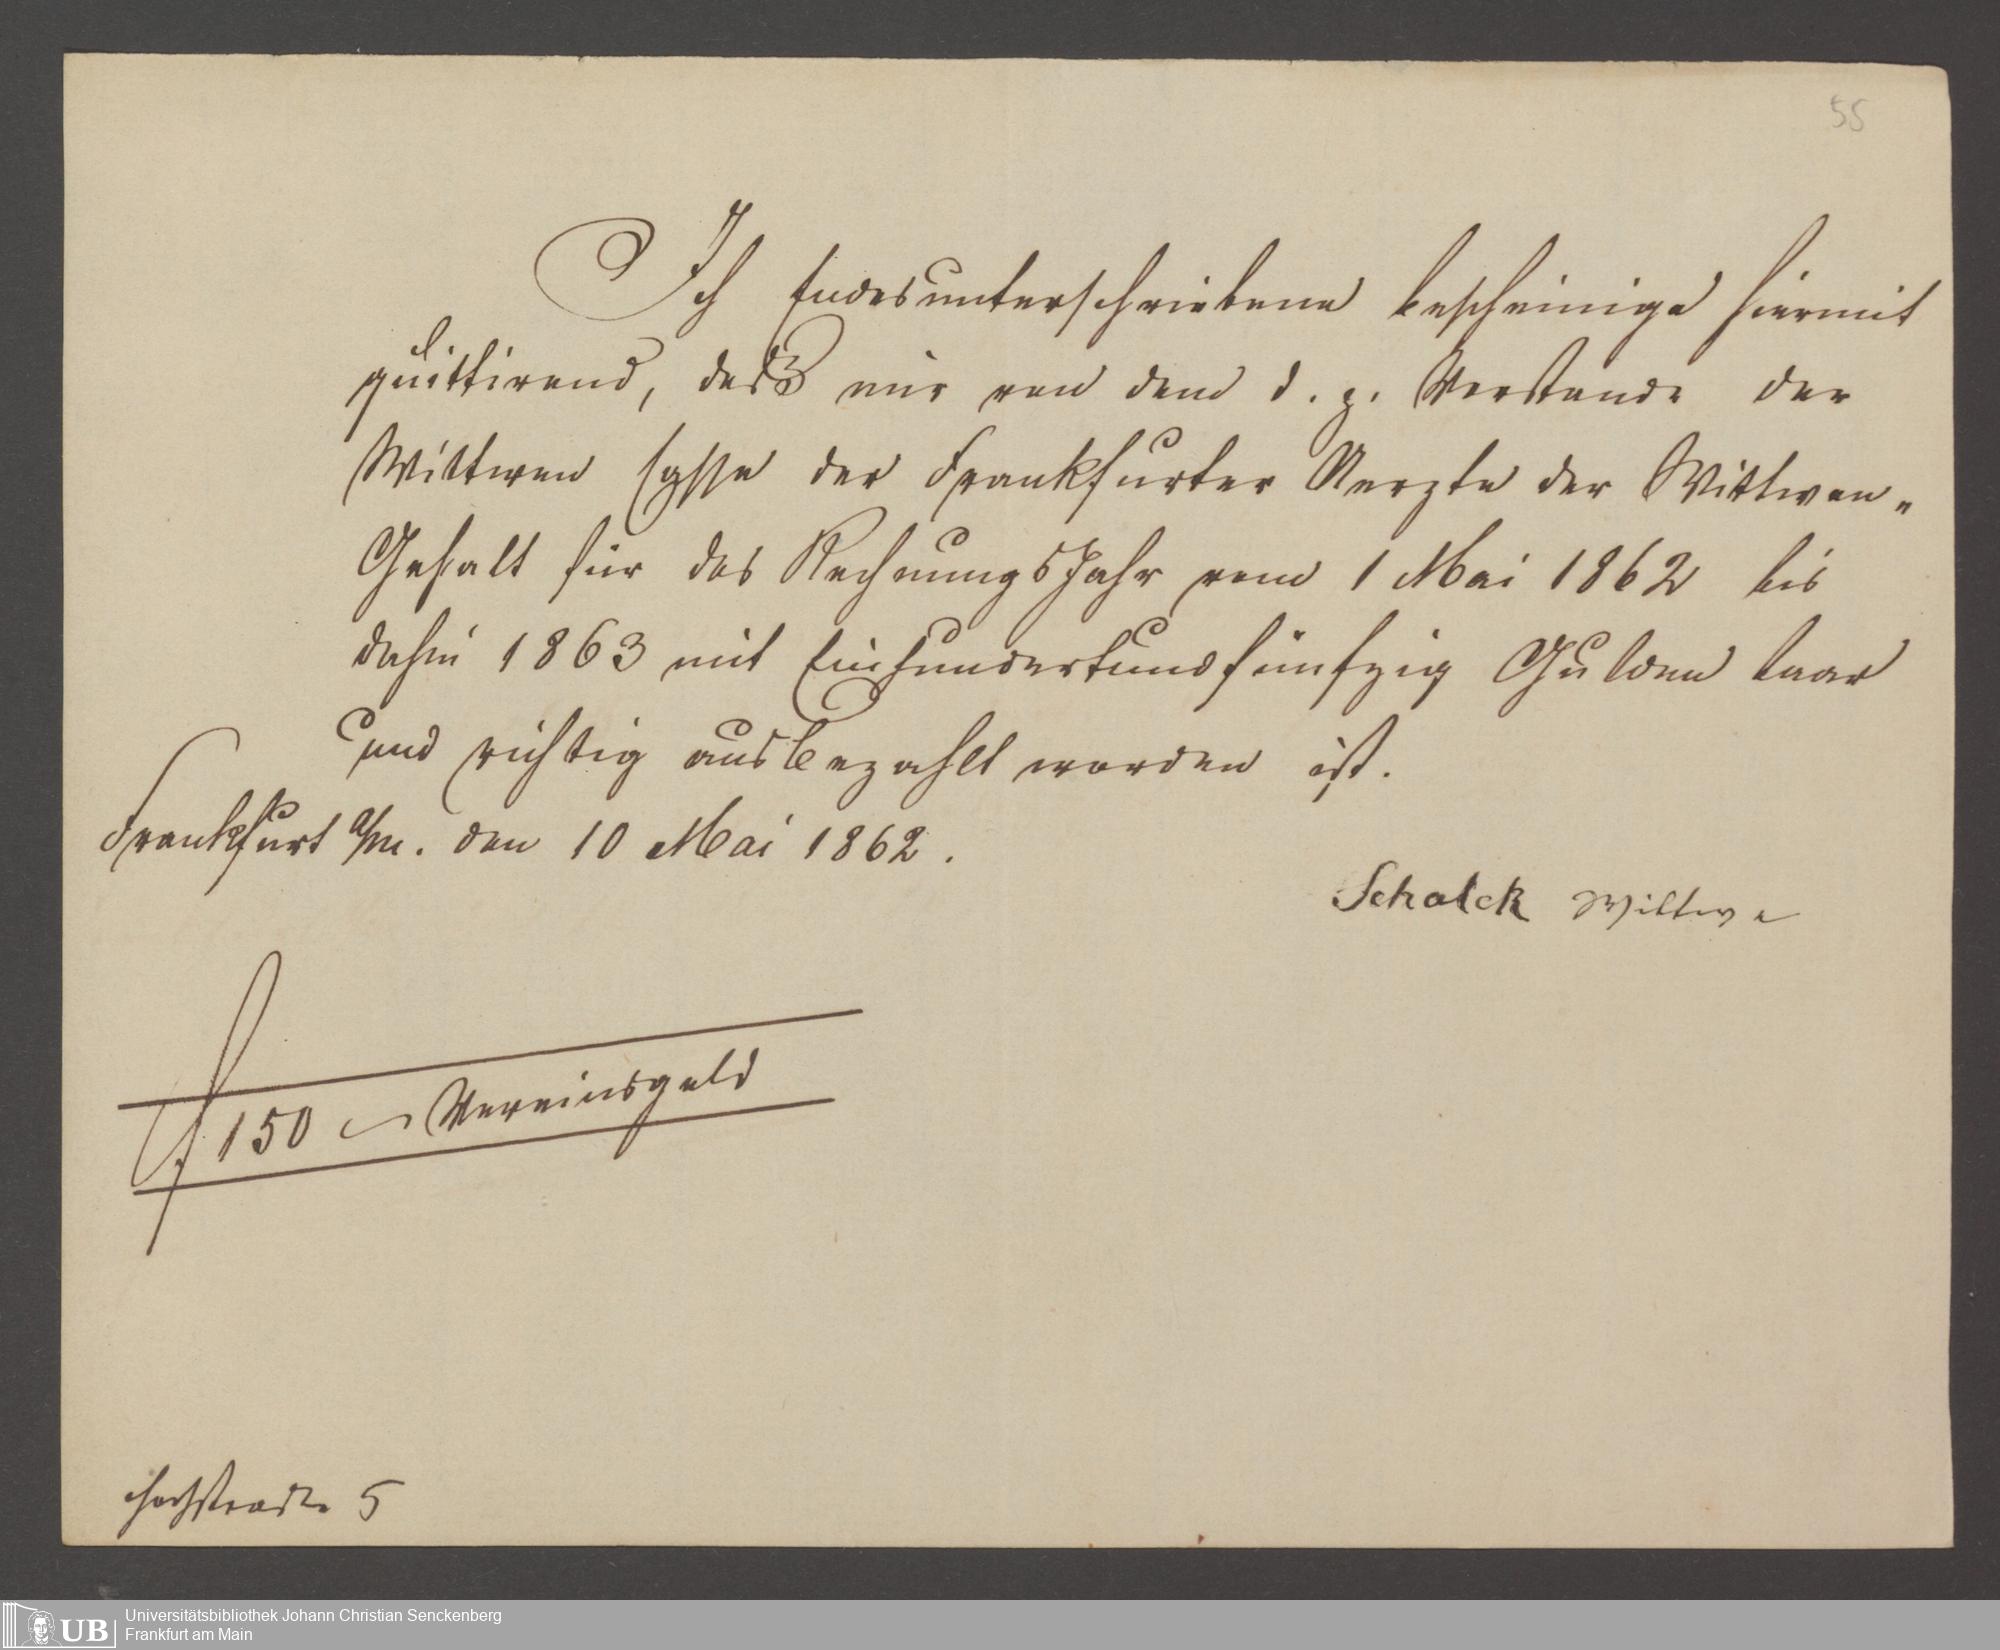 55
Ich Endesunterschriebene bescheinige hiermit
quittirend, daß mir von dem d. z. Vorstande der
Wittwen Casse der Frankfurter Aerzte der Wittwen-
Gehalt für das RechnungsJahr vom 1 Mai 1862 bis
dahin 1863 mit Einhundertundfünfzig Gulden baar
und richtig ausbezahlt worden ist.
Frankfurt a/m. den 10 Mai 1862.
Schalck Wittwe
f 150 – Vereinsgeld
Hochstraße 5
Universitätsbibliothek Johann Christian Senckenberg
UB Frankfurt am Main